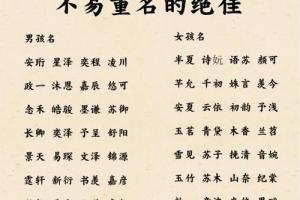 不易重名的绝佳
男孩名
女孩名
安珩 星泽 奕程 凌川
半夏 诗沅 语苏 颜可
政一 沐恩 嘉辰 悠可
芊允 千初 姝言 羡今
念禾 皓骏 墨谦 苏御
安夏 云依 初韵 于浅
长卿 奕泽 子呈 舒阳
玉茗 青黛 木香 兰苕
景天 易琛 文泽 锦源
雪见 苏子 挽清 音婉
霆轩 新衍 书美 嘉彦
玉竹 苏木 山奈 纪棠